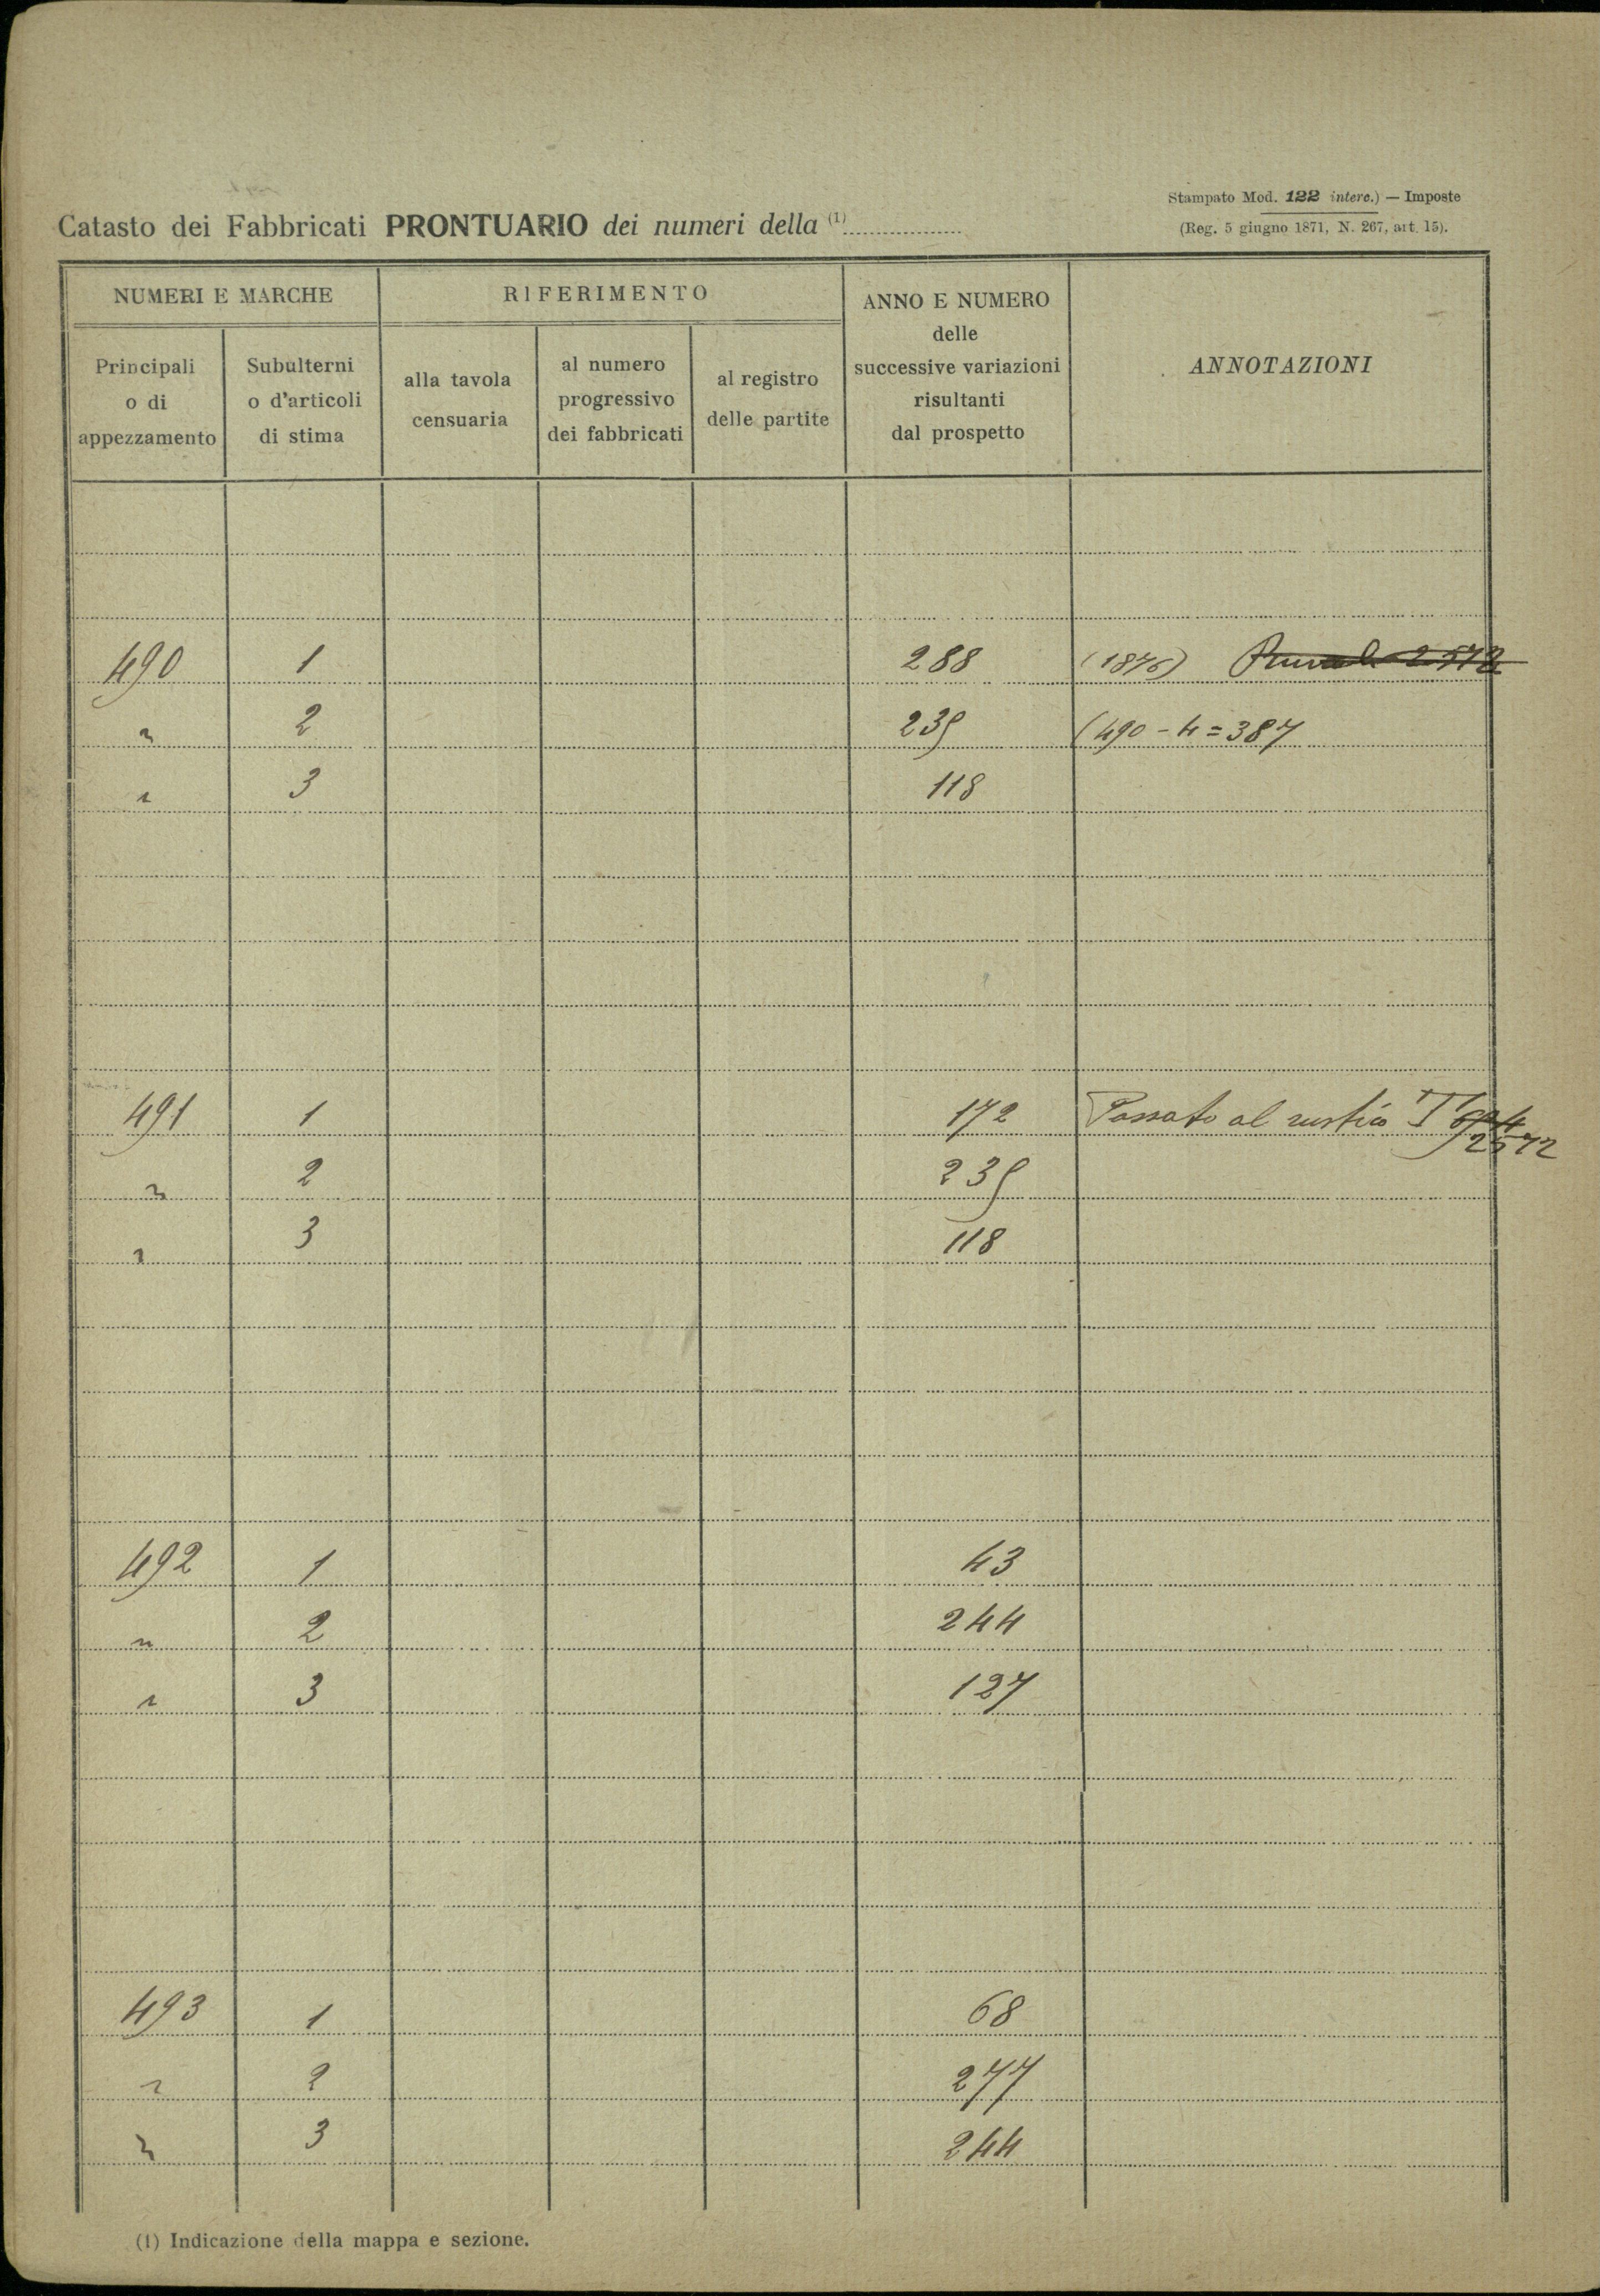 Stampato Mod. 122 interc.) — Imposte
(Reg. 5 giugno 1871, N. 267, art. 15).
Catasto dei Fabbricati PRONTUARIO dei numeri della (1)
NUMERI E MARCHE
RIFERIMENTO
ANNO E NUMERO
delle
successive variazioni
risultanti
dal prospetto
ANNOTAZIONI
Principali
o di
appezzamento
Subulterni
o d'articoli
di stima
alla tavola
censuaria
al numero
progressivo
dei fabbricati
al registro
delle partite
490 1 288 (1876) 2572
" 2 239 (490 - 4 = 387
" 3 118
491 1 172 Passato al rustico
2572
" 2 239
" 3 118
492 1 43
" 2 244
" 3 127
493 1 68
" 2 277
" 3 244
(1) Indicazione della mappa e sezione.